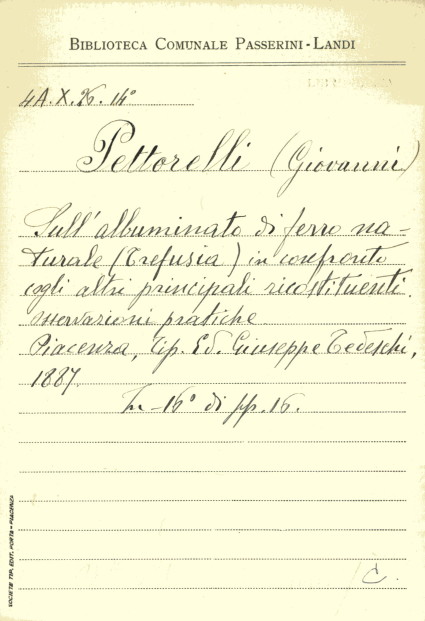 BIBLIOTECA COMUNALE PASSERINI-LANDI
4A.X.26.14°
Pettorelli (Giovanni)
Sull'albuminato di ferro na-
turale (Trefusia) in confronto
cogli altri principali ricostituenti.
osservazioni pratiche
Piacenza, Tip. Ed. Giuseppe Tedeschi,
1887.
In-16° di pp. 16.
C.
SOCIETÀ TIP. EDIT. PORTA - PIACENZA